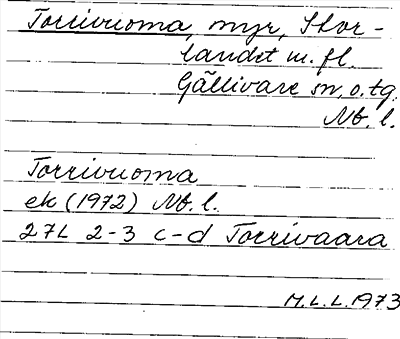 Torrivuoma, myr, Stor-
landet m. fl.
Gällivare sn, o. tg.
Nb. l.
Torrivuoma
ek (1972) Nb. l.
27L 2-3 c-d Torrivaara
M.L.L. 1973